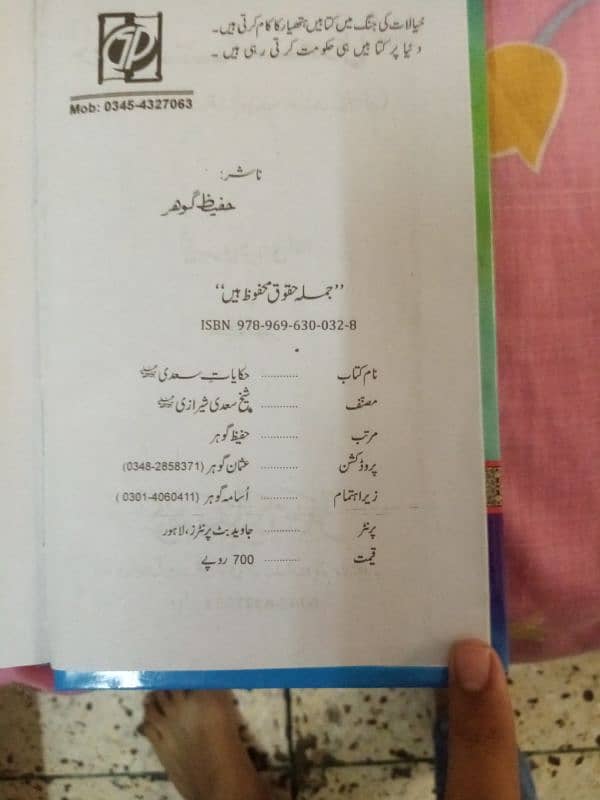 خیالات کی جنگ میں کتابیں ہتھیار کا کام کرتی ہیں۔
دنیا پر کتابیں ہی حکومت کرتی رہی ہیں۔
Mob: 0345-4327063
ناشر:
حفیظ گوہر
”جملہ حقوق محفوظ ہیں“
ISBN 978-969-630-032-8
نام کتاب ............ حکایاتِ سعدی
مصنف ............ شیخ سعدی شیرازی
مرتب ............ حفیظ گوہر
پروڈکشن ............ عثمان گوہر (0348-2858371)
زیر اہتمام ............ اُسامہ گوہر (0301-4060411)
پرنٹر ............ جاوید بٹ پرنٹرز، لاہور
قیمت ............ 700 روپے